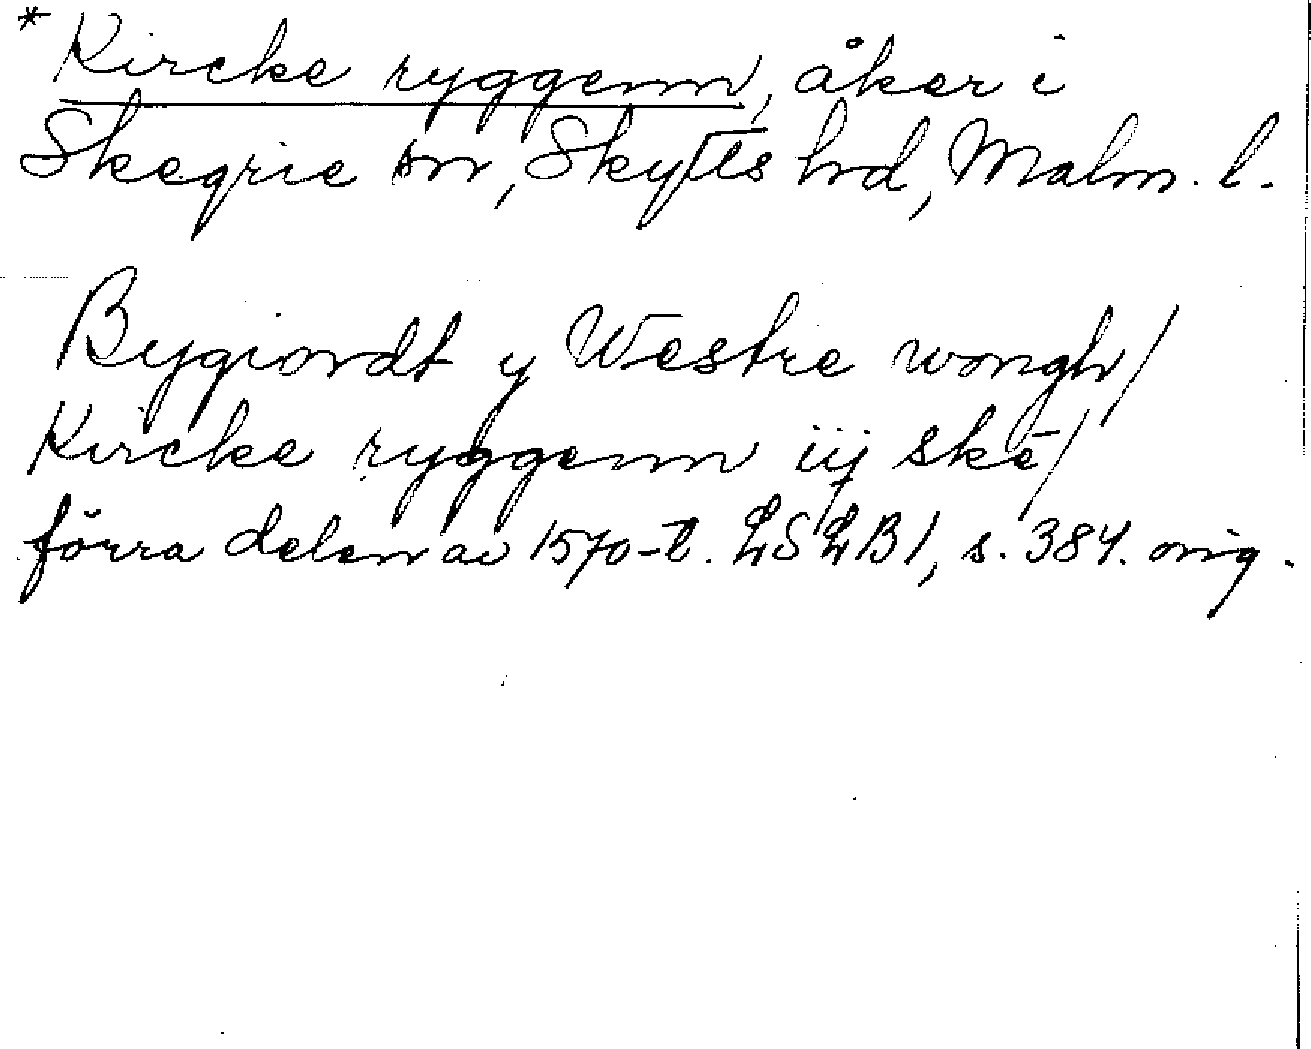 * Kircke ryggenn, åker i
Skegrie sn, Skytts hd, Malm. l.
Bygiordt y Westre wongh/
Kircke ryggenn iij skē/
förra delen av 1570-t. LSLB1, s. 384. orig.